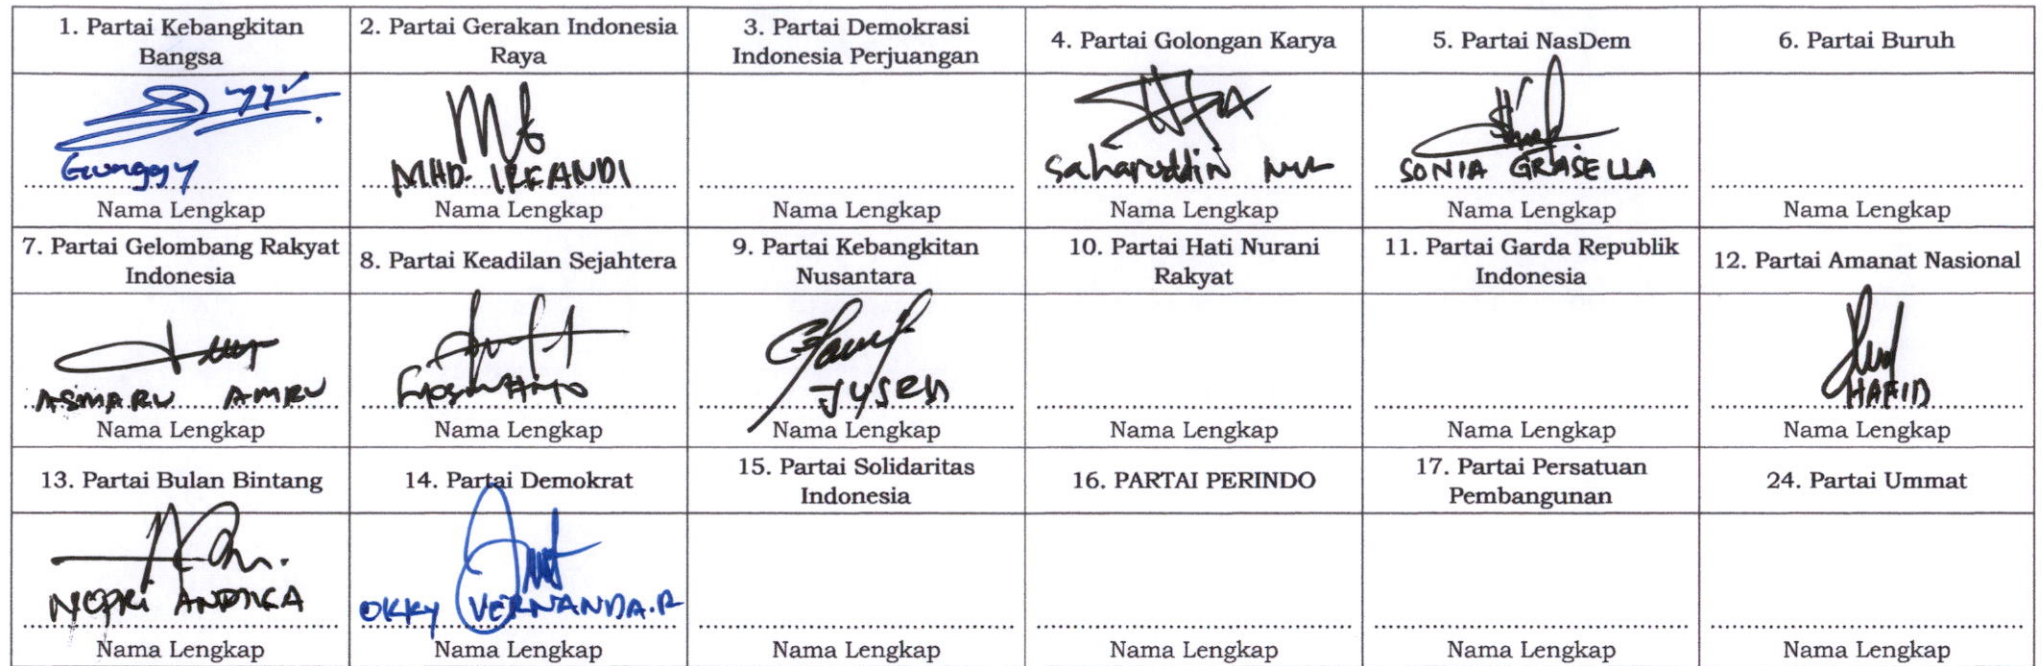 1. Partai Kebangkitan
Bangsa
2. Partai Gerakan Indonesia
Raya
3. Partai Demokrasi
Indonesia Perjuangan
4. Partai Golongan Karya
5. Partai NasDem
6. Partai Buruh
MHD. IRFANDI
Saharuddin
SONIA GRASELLA
Nama Lengkap
Nama Lengkap
Nama Lengkap
Nama Lengkap
Nama Lengkap
Nama Lengkap
7. Partai Gelombang Rakyat
Indonesia
8. Partai Keadilan Sejahtera
9. Partai Kebangkitan
Nusantara
10. Partai Hati Nurani
Rakyat
11. Partai Garda Republik
Indonesia
12. Partai Amanat Nasional
ASMARU AMRU
HAFID
Nama Lengkap
Nama Lengkap
Nama Lengkap
Nama Lengkap
Nama Lengkap
Nama Lengkap
13. Partai Bulan Bintang
14. Partai Demokrat
15. Partai Solidaritas
Indonesia
16. PARTAI PERINDO
17. Partai Persatuan
Pembangunan
24. Partai Ummat
OKKY VERNANDA.P
Nama Lengkap
Nama Lengkap
Nama Lengkap
Nama Lengkap
Nama Lengkap
Nama Lengkap